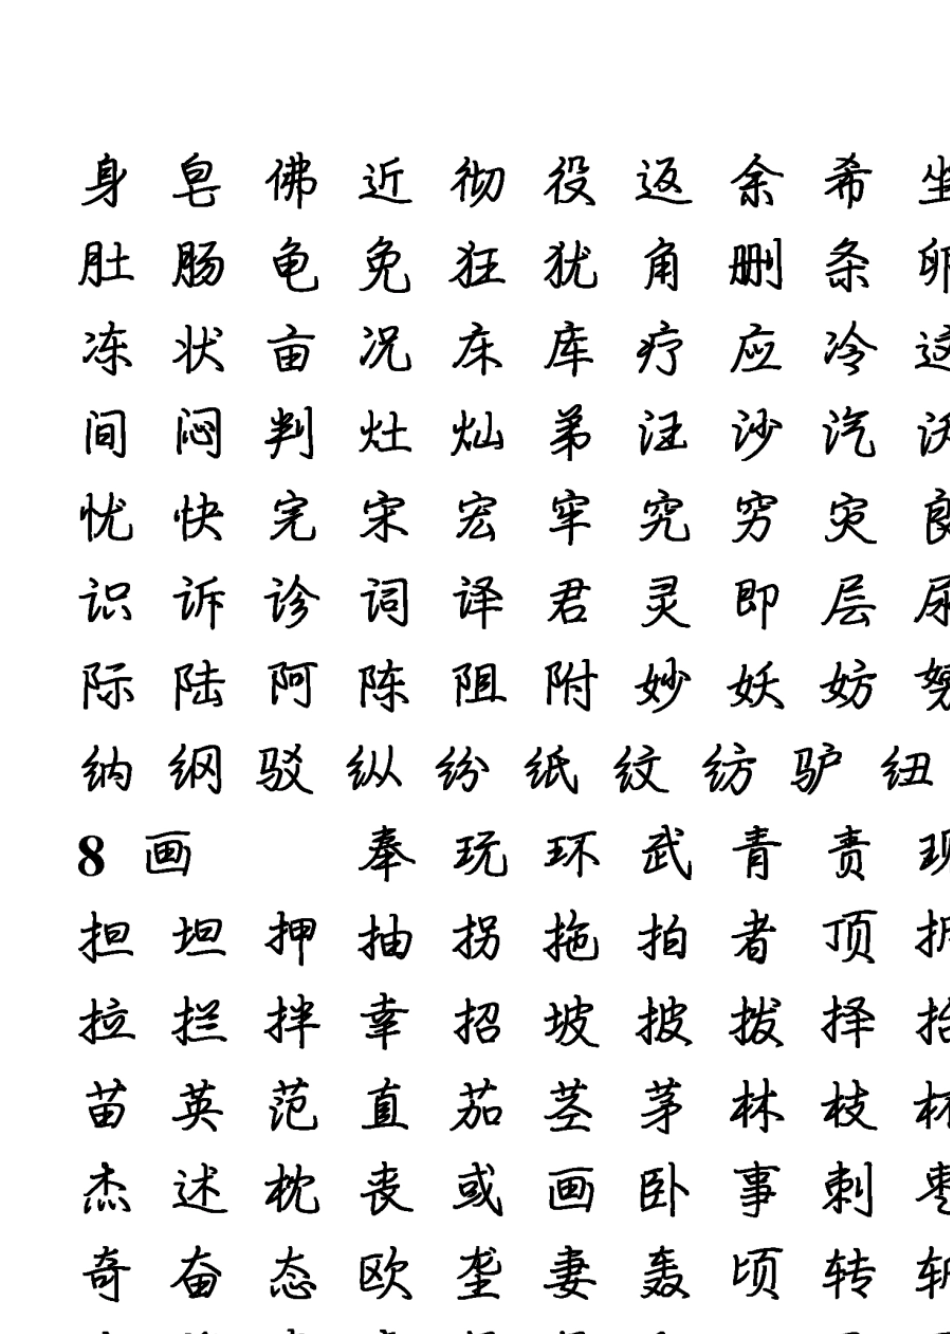 身 皂 佛 近 彻 役 返 余 希 坐
肚 肠 龟 免 狂 犹 角 删 条 卵
冻 状 亩 况 床 库 疗 应 冷 这
间 闷 判 灶 灿 弟 汪 沙 汽 沃
忧 快 完 宋 宏 牢 究 穷 灾 良
识 诉 诊 词 译 君 灵 即 层 尿
际 陆 阿 陈 阻 附 妙 妖 妨 努
纳 纲 驳 纵 纷 纸 纹 纺 驴 纽
8 画 奉 玩 环 武 青 责 现
担 坦 押 抽 拐 拖 拍 者 顶
拉 拦 拌 幸 招 坡 披 拨 择 抬
苗 英 范 直 茄 茎 茅 林 枝 杯
杰 述 枕 丧 或 画 卧 事 刺 枣
奇 奋 态 欧 垄 妻 轰 顷 转 斩